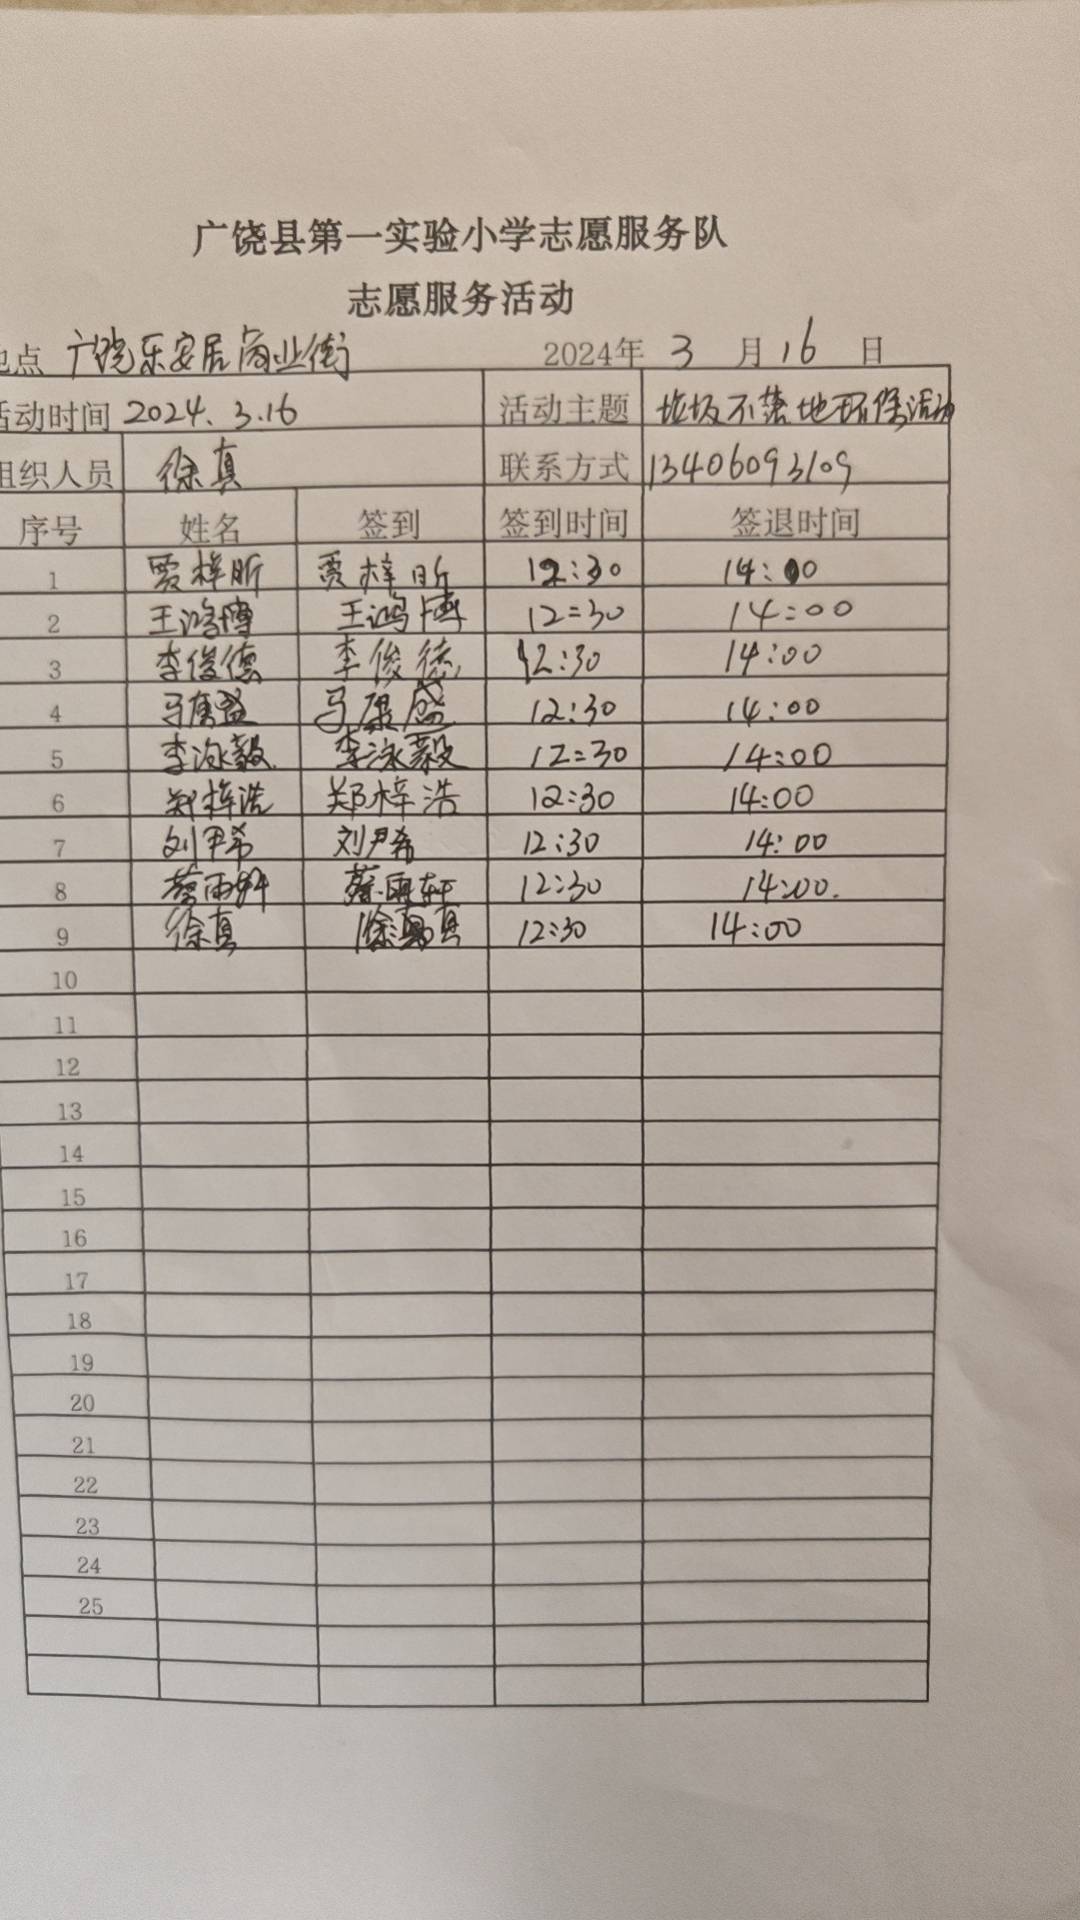 广饶县第一实验小学志愿服务队
志愿服务活动
地点 广饶乐安居商业街 2024年 3 月 16 日
活动时间 2024.3.16 活动主题 垃圾不落地环保活动
组织人员 徐真 联系方式 13406093109
序号 姓名 签到 签到时间 签退时间
1 贾梓昕 贾梓昕 12:30 14:00
2 王鸿博 王鸿博 12:30 14:00
3 李俊德 李俊德 12:30 14:00
4 马康盛 马康盛 12:30 14:00
5 李泳毅 李泳毅 12:30 14:00
6 郑梓浩 郑梓浩 12:30 14:00
7 刘尹希 刘尹希 12:30 14:00
8 蔡雨轩 蔡雨轩 12:30 14:00.
9 徐真 徐真 12:30 14:00
10
11
12
13
14
15
16
17
18
19
20
21
22
23
24
25